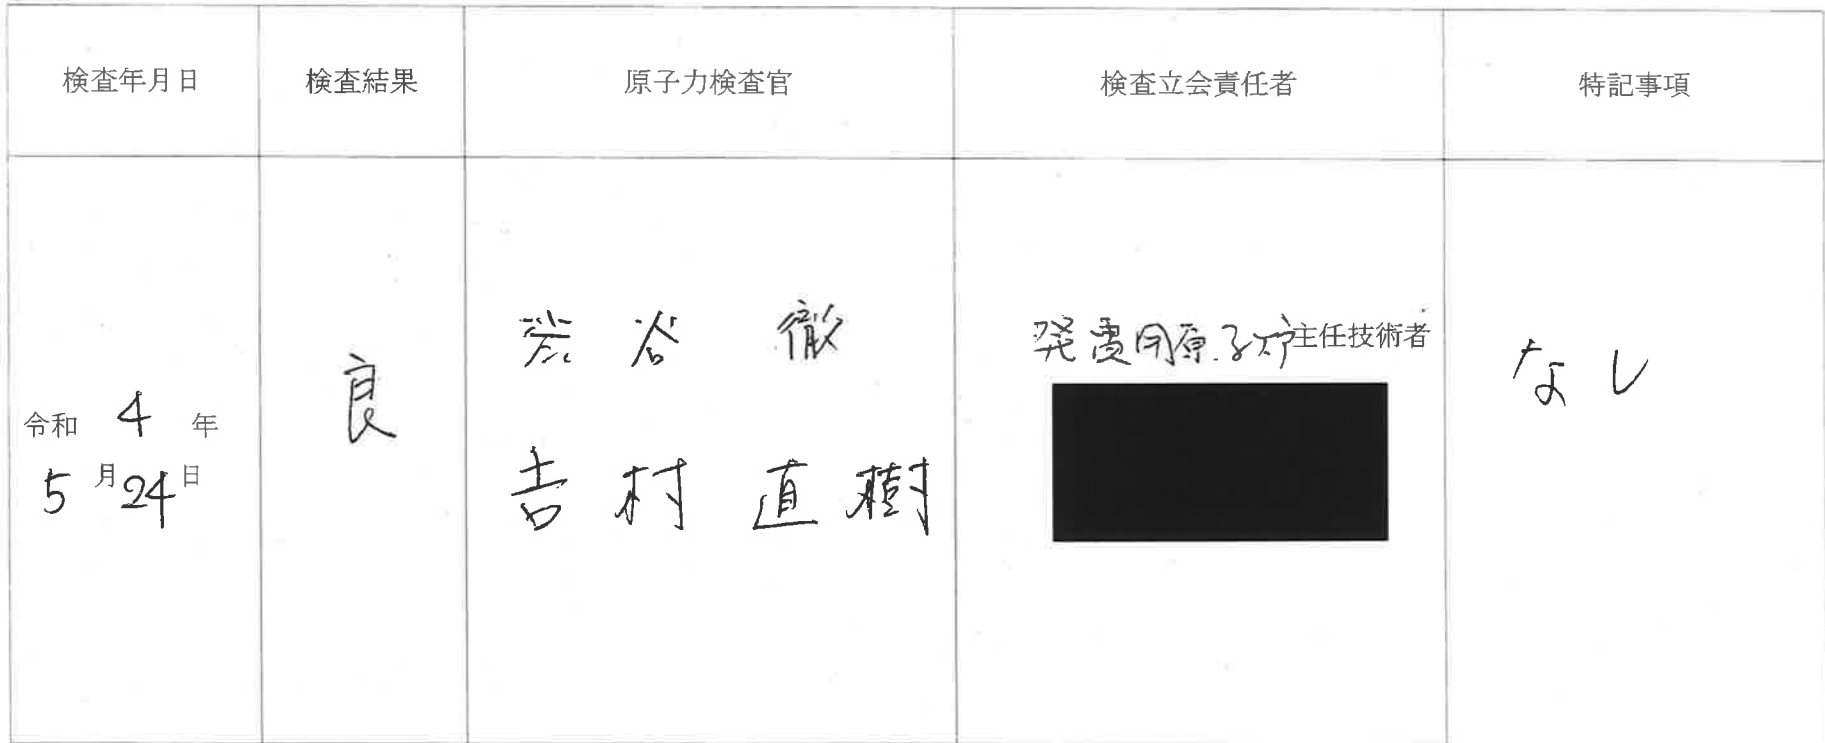 検査年月日 検査結果 原子力検査官 検査立会責任者 特記事項
令和 4 年
5 月 24 日
良
渋谷 徹
吉村 直樹
発電用原子炉主任技術者
なし